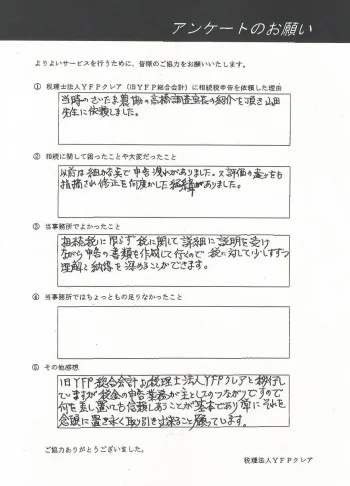 アンケートのお願い
よりよいサービスを行うために、皆様のご協力をお願いいたします。
① 税理士法人YFPクレア（旧YFP総合会計）に相続税申告を依頼した理由
当時のさいたま農協の高橋調査室長の紹介を頂き山田
先生に依頼しました。
② 相続に関して困ったことや大変だったこと
以前は細かな点で申告洩れがありました。又評価の違い等も
指摘され修正を何度かした経緯がありました。
③ 当事務所でよかったこと
相続税に限らず税に関して詳細に説明を受け
ながら申告の書類を作成して行くので税に対して少しずつ
理解と納得を深めることができます。
④ 当事務所ではちょっともの足りなかったこと
⑤ その他感想
旧YFP総合会計より税理士法人YFPクレアと移行し
ていますが税金の申告業務が主としてのつながりですので
何を差し置いても信頼しあうことが基本であり常にそれを
念頭に置き永く取り引き出来ること願っています。
ご協力ありがとうございました。
税理士法人YFPクレア